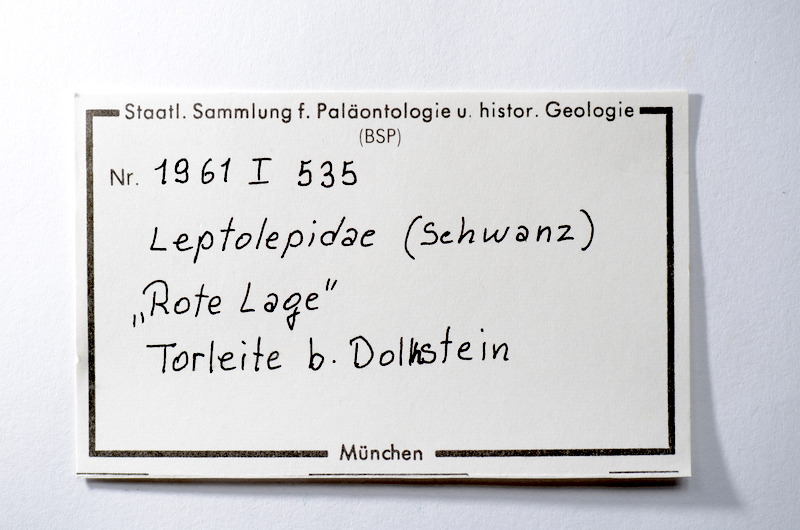 Staatl. Sammlung f. Paläontologie u. histor. Geologie
(BSP)
Nr. 1961 I 535
Leptolepidae (Schwanz)
„Rote Lage"
Torleite b. Dolhstein
München